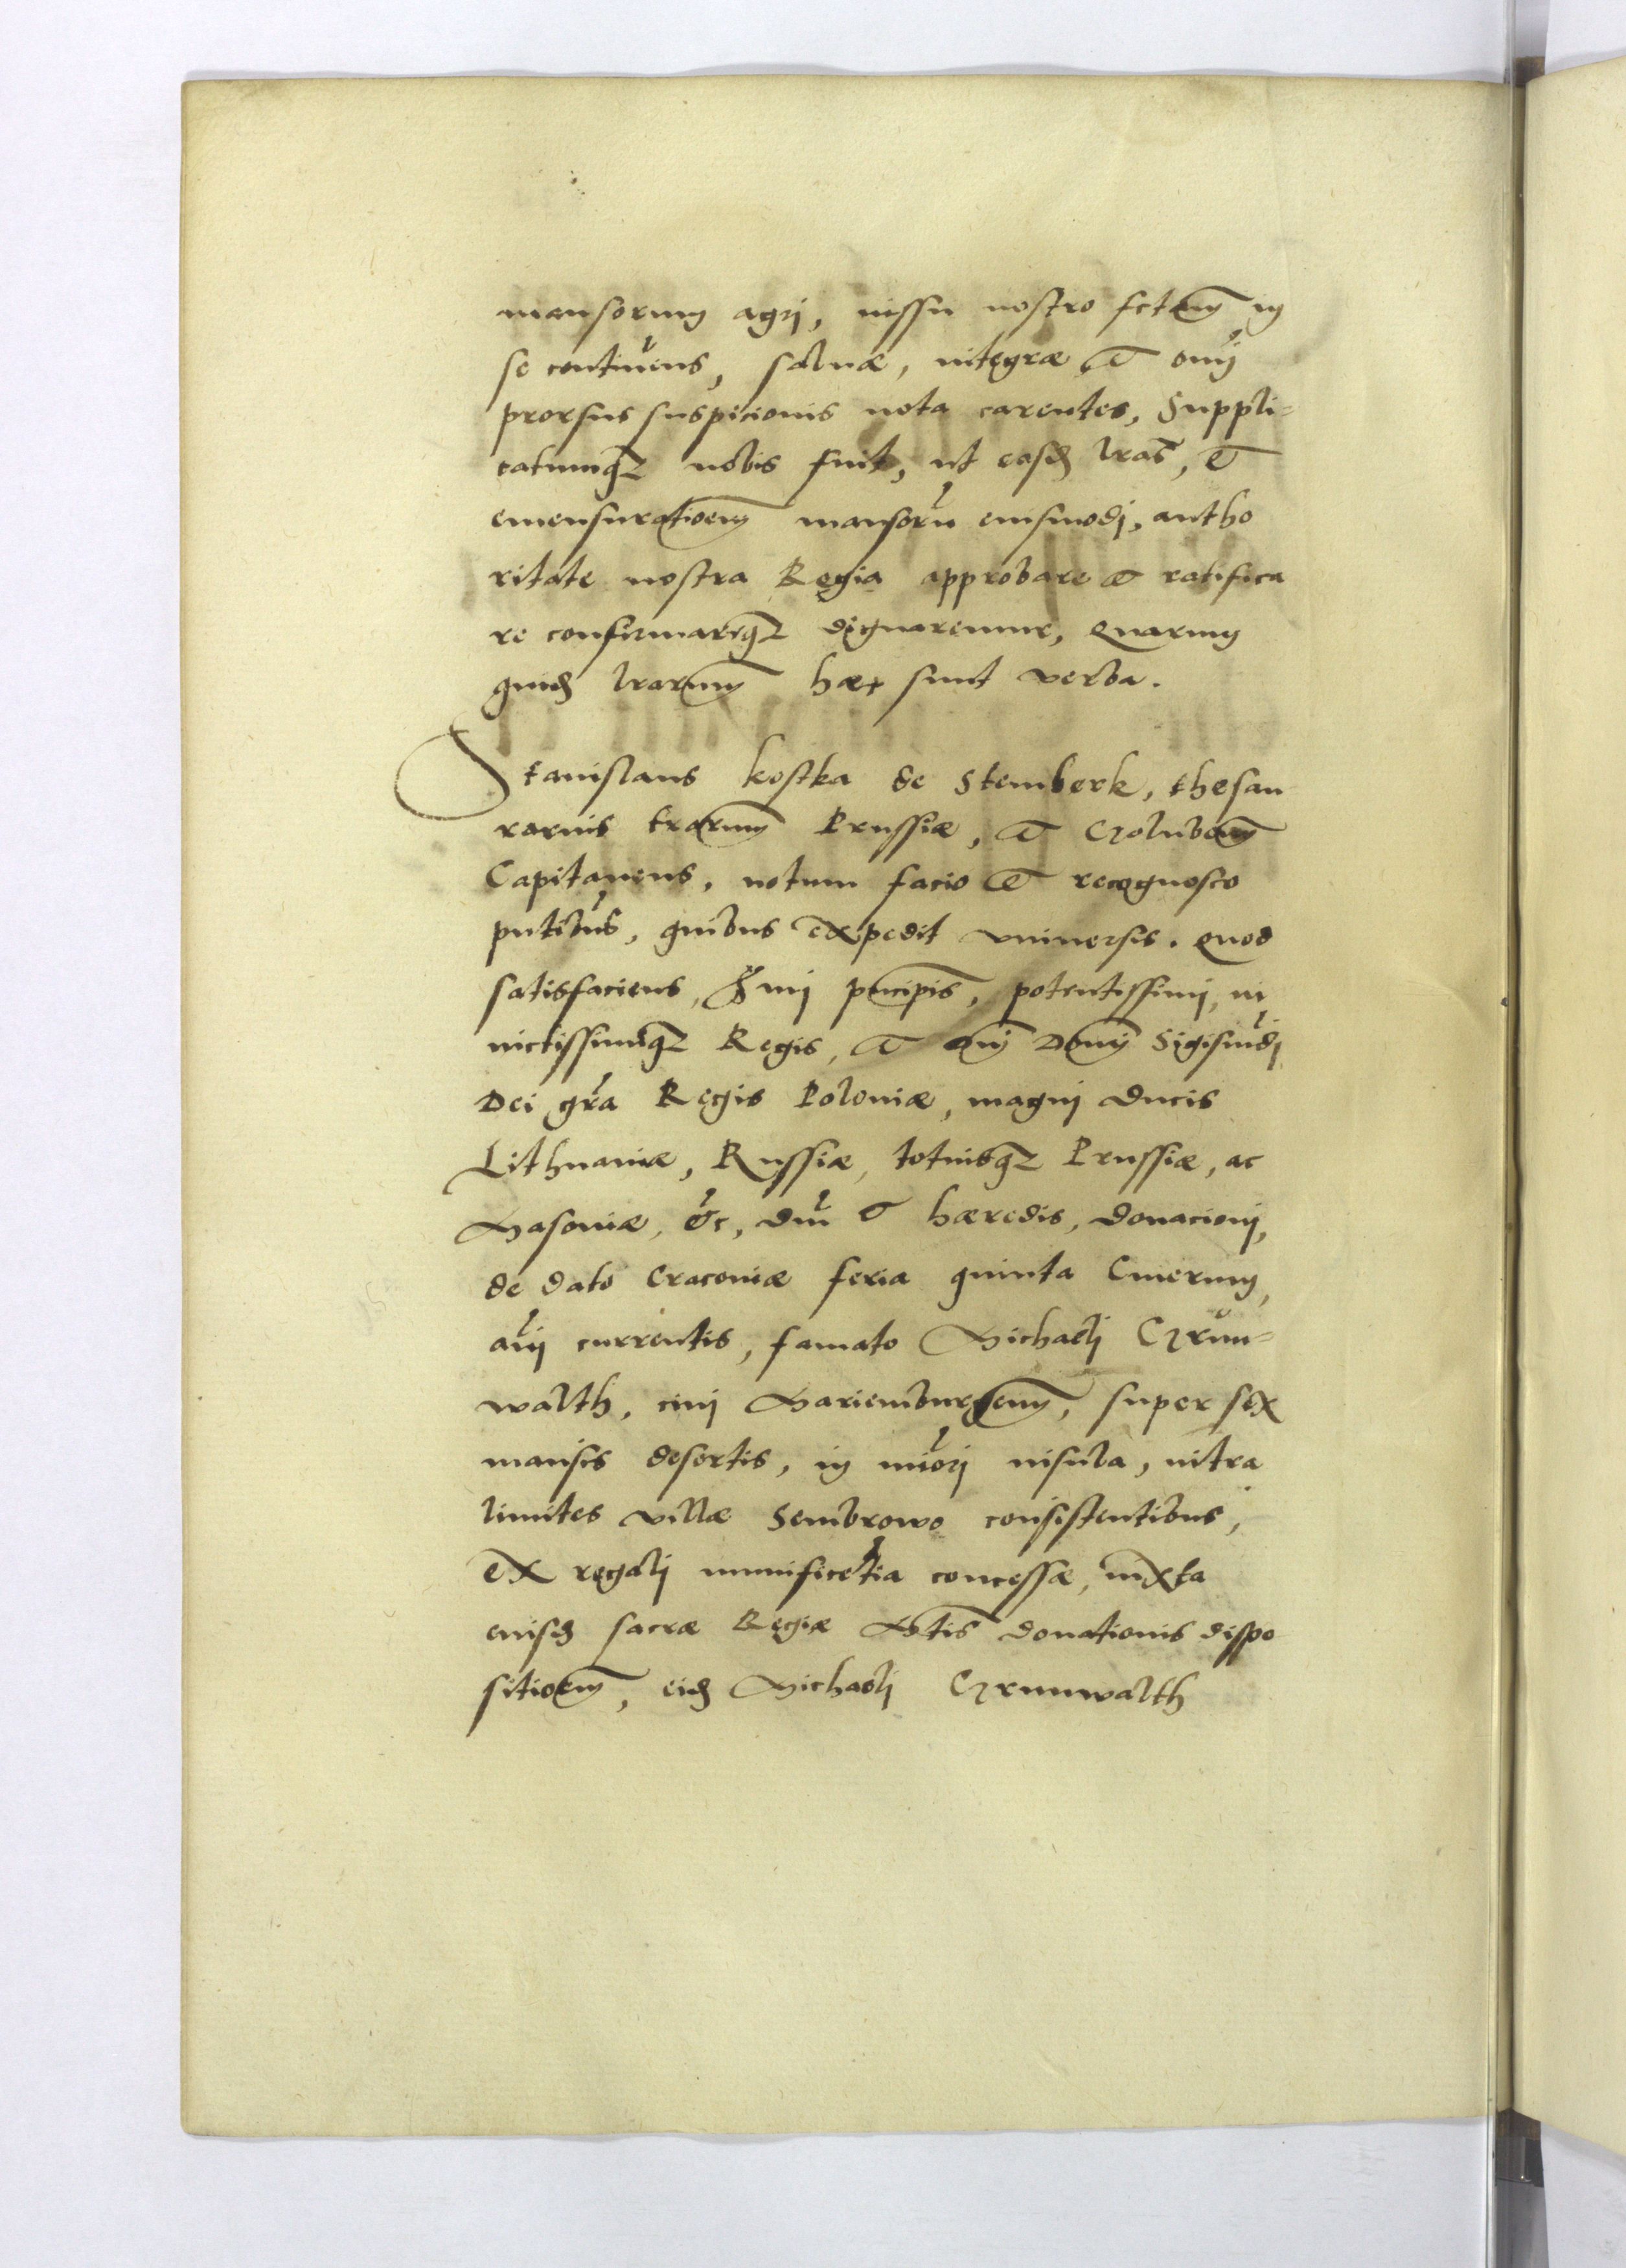 mansorum agri, iussu nostro fctam in
se continens, saluæ, integræ et omi
prorsus suspicionis nota carentes, Suppli-
catumq3 nobis fuit, ut easd lras, et
emensurationem mansorū eiusmodi, autho
ritate nostra Regia approbare et ratifica
re confirmareq3 dignaremur, Quarum
quid lrarum hæc sunt verba.
Stanislaus Kostka de Stemberk, thesau
rarius trarum Prussiæ, et Golubem
Capitaneus, notum facio et recognosco
pntibus, quibus expedit vniuersis. Quod
satisfaciens, Smi pncipis, potentissimi, in
uictissimiq3 Regis, et Dni Domi Sigismūdi
Dei gra Regis Poloniæ, magni Ducis
Lithuaniæ, Russiæ, totiusq3 Prussiæ, ac
Masouiæ, etc, Dni et hæredis, donacioni,
de dato Cracouiæ feria quinta Cinerum,
anni currentis, famato Michaeli Grun-
walth, ciui Mariemburgem, super sex
mansis desertis, in minori insula, intra
limites villæ Sembrowo consistentibus,
ex regali munificētia concessæ, iuxta
eiusd sacræ Regiæ Mtis donationis dispo
sitionem, eid Michaeli Grunwalth